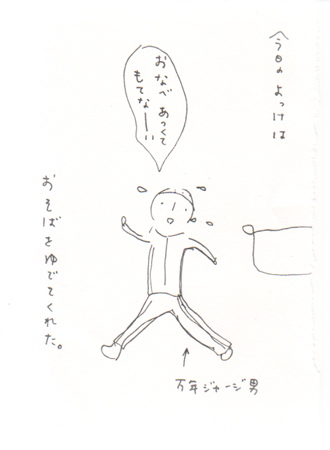 今日の よっけは
おなべ あつくて
もてなーい
おそばをゆでてくれた。
万年ジャージ男